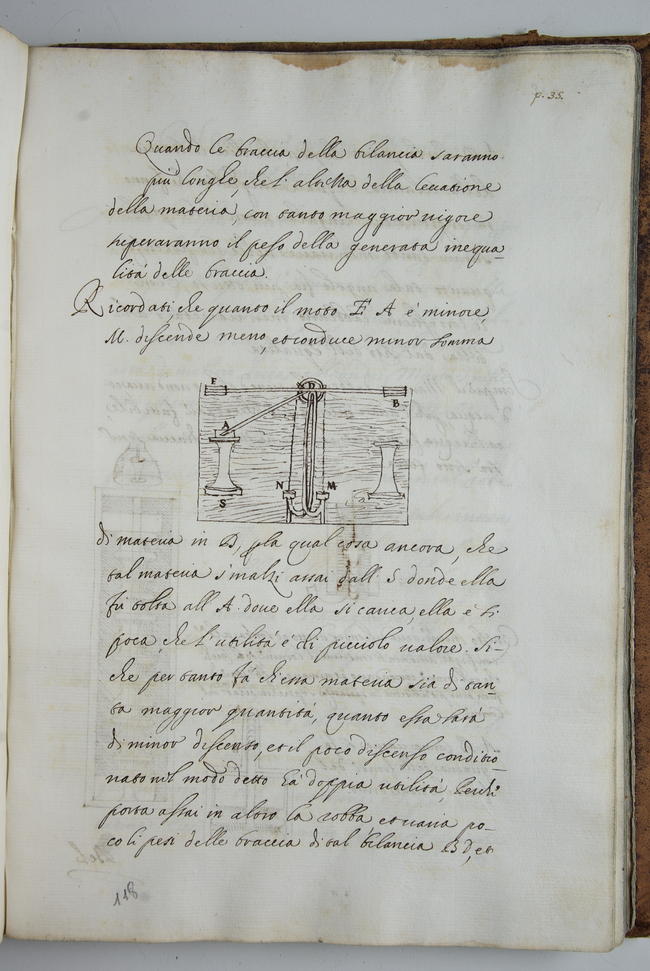 p. 35.
Quando le braccia della bilancia saranno
più longhe che l'altezza della levatione
della materia, con tanto maggior vigore
superaranno il peso della generata inequa-
lità delle braccia.
Ricordati, che quanto il moto F A è minore,
M. discende meno, et conduce minor somma
F D B
A
S N M
di materia in B, per la qual cosa ancora, che
tal materia s'inalzi assai dall S donde ella
fù tolta all A dove ella si carica, ella è sì
poca, che l'utilità è di picciolo valore. Si-
che per tanto fà ch'essa materia sia di tan-
ta maggior quantità, quanto essa sarà
di minor discenso, et il poco discenso conditio-
nato nel modo detto hà doppia utilità,
porta assai in alto la robba et varia po-
co li pesi delle braccia di tal bilancia BD, et
118